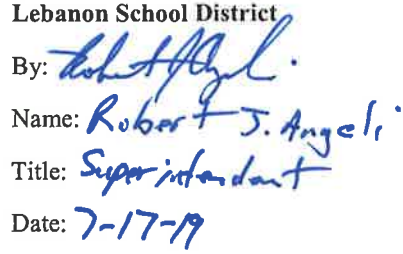 Lebanon School District
By: Robert J Angeli
Name: Robert J. Angeli
Title: Superintendant
Date: 7-17-19